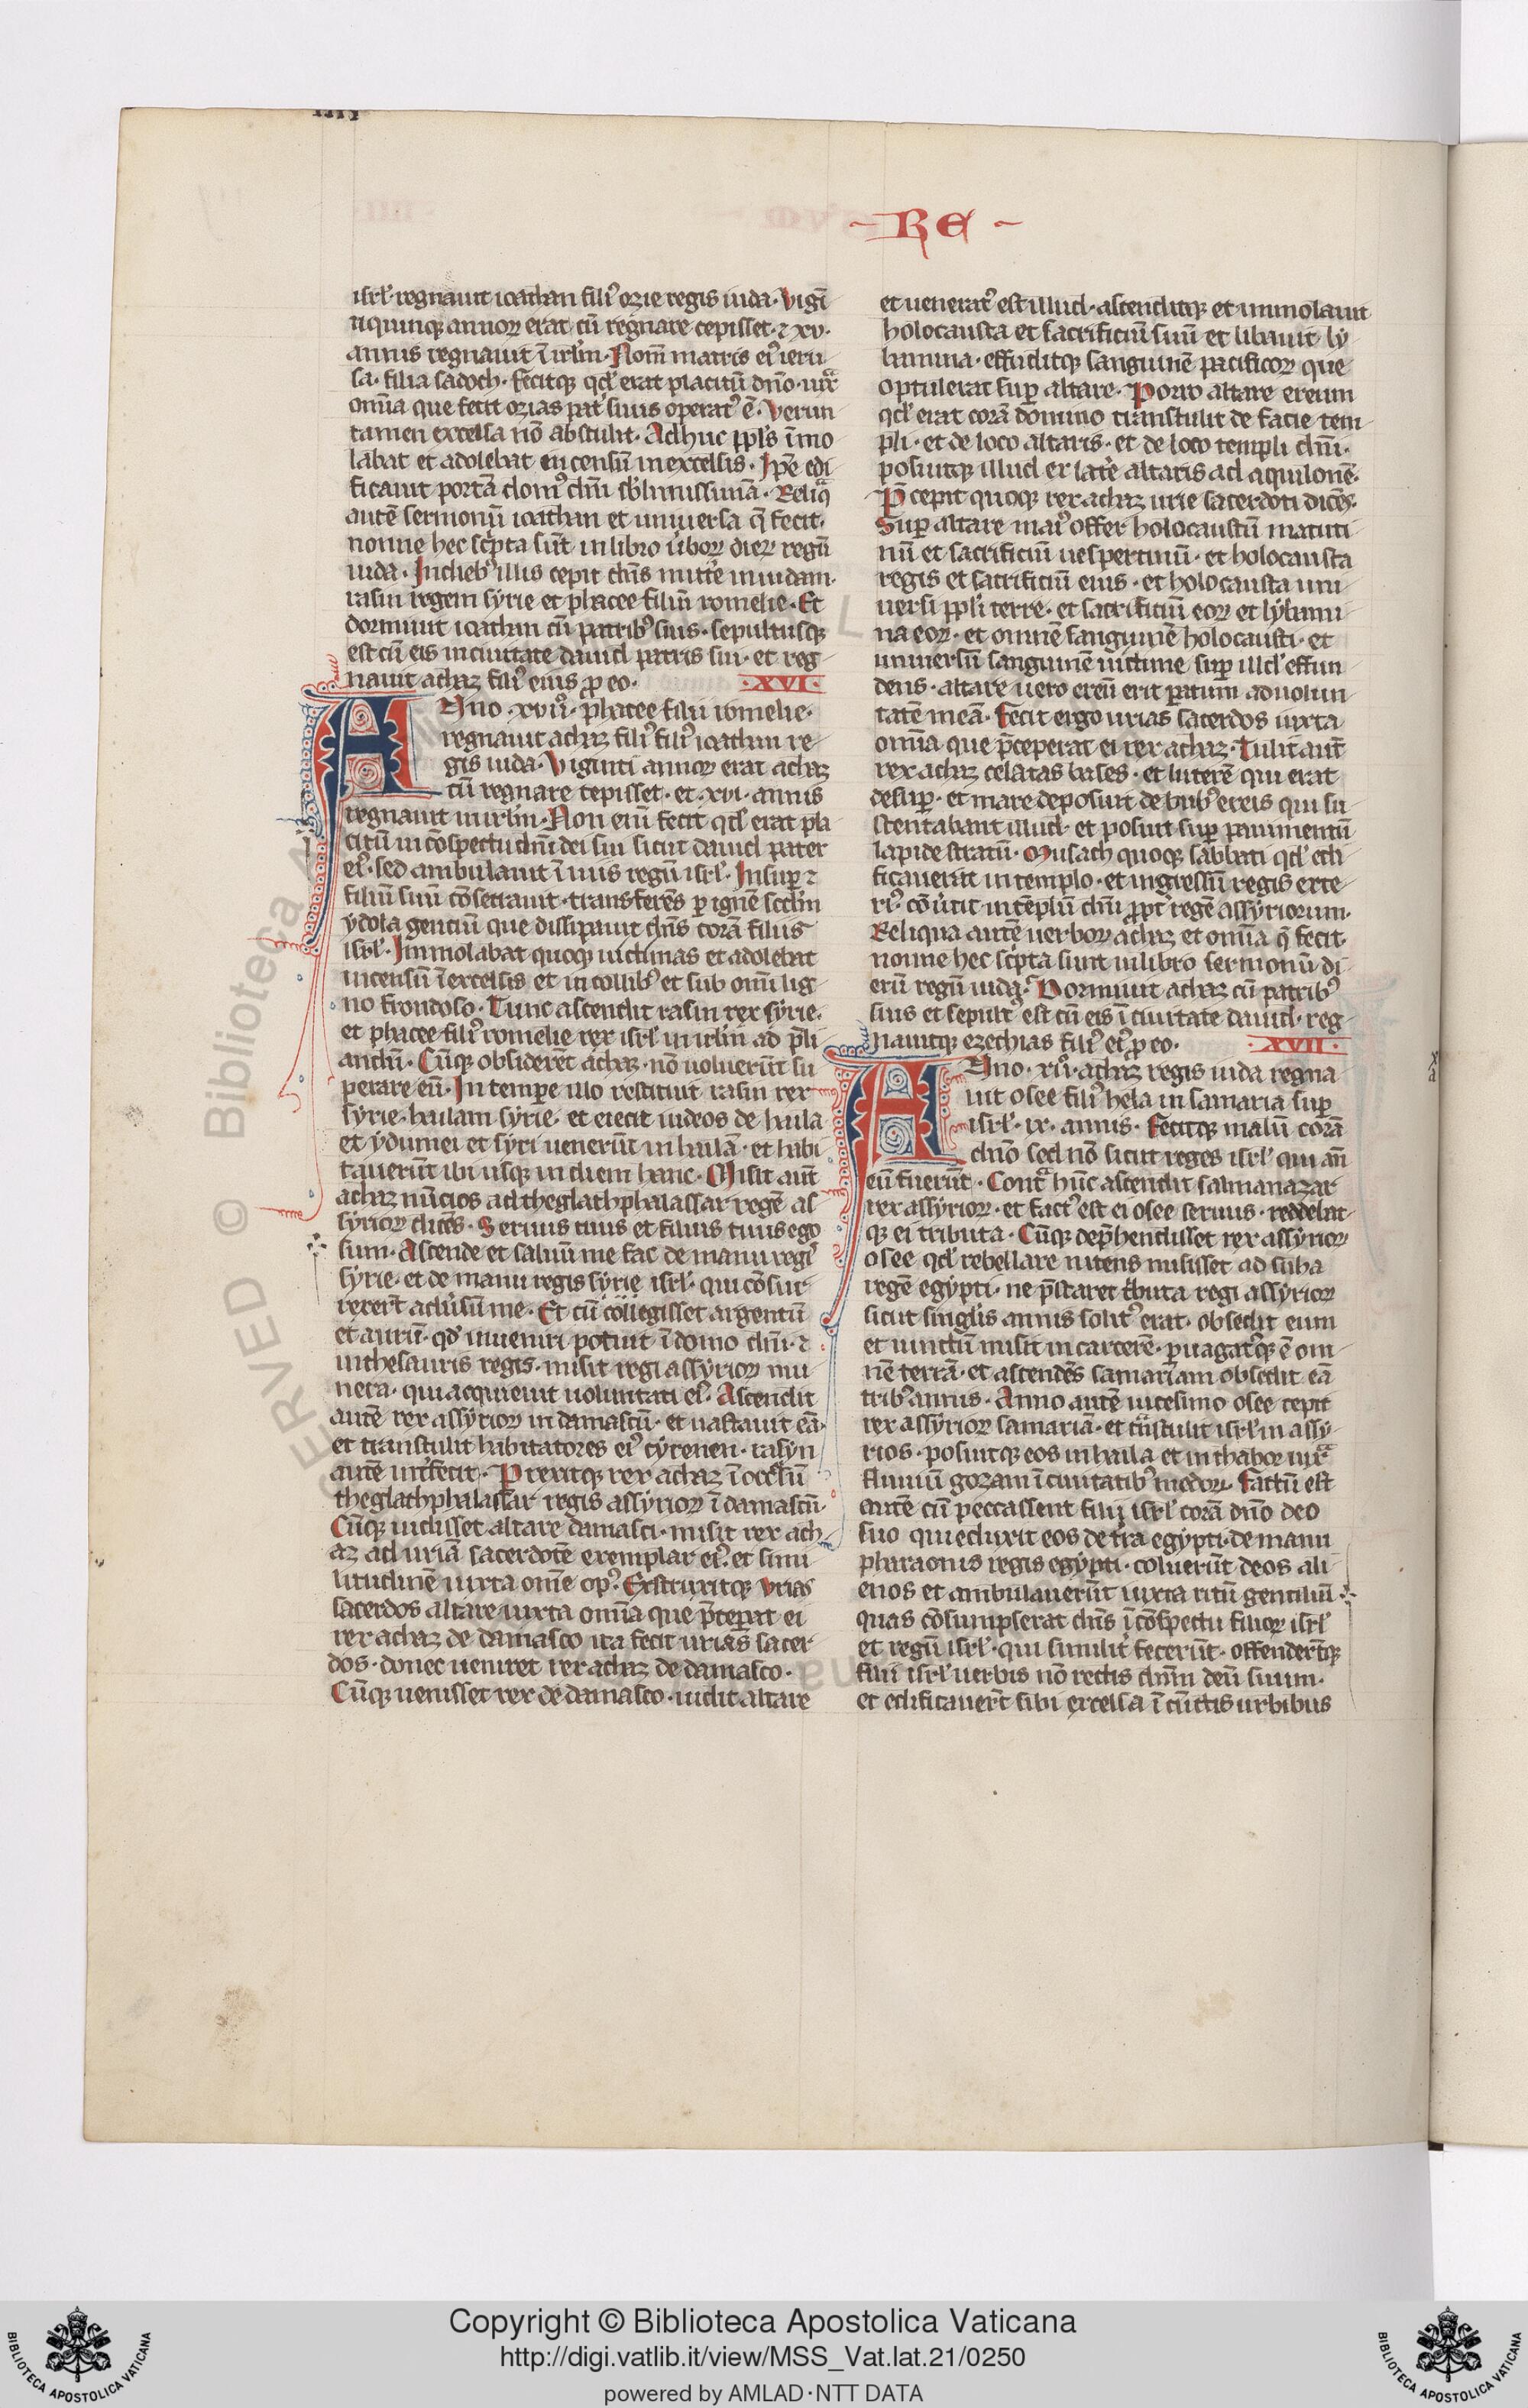 RE
isrl' regnauit ioathan fili9 ozie regis iuda· Vigī
ti quinq; annoꝝ erat cū regnare cepisset· ⁊ xv·
annis regnauit ī irlm̄· Nom̄ matris ei9 ieru
sa· filia sadoch· fecitq; qd' erat placitū dn̄o· iux̄
om̄ia que fecit ozias pat' suus operat9 ē· Verun
tamen excelsa nō abstulit· Adhuc ppl's īmo
labat et adolebat incensū in excelsis· Ip̄e edi
ficauit portā dom9 dn̄i sb'limissimā· Reliq̄
autē sermonū ioathan et uniuersa q̄ fecit·
nonne hec sc'pta sūt in libro ūboꝝ dieꝝ regū
iuda· In dieb9 illis cepit dn̄s mitt'e in iudam·
rasin regem syrie et phacee filiū romelie· Et
dormiuit ioathan cū patrib9 suis· sepultusq;
est cū eis in ciuitate dauid patris sui· et reg
nauit achaz fili9 eius ꝓ eo·
·XVI·
Anno ·xvii9· phacee filii romelie·
regnauit achaz fili9 fili9 ioathan re
gis iuda· Viginti annoꝝ erat achaz
cū regnare cepisset· et ·xvi· annis
regnauit in irlm̄· Non eni fecit qd' erat pla
citū in cōspectu dn̄i dei sui sicut dauid pater
ei9· sed ambulauit ī uiis regū isrl'· Insuꝑ ⁊
filiū suū cōsecrauit· transferēs ꝑ ignē scdm̄
ydola gentiū que dissipauit dn̄s corā filiis
isrl'· Immolabat quoq; uictimas et adolebat
incensū ī excelsis et in collib9 et sub om̄i lig
no frondoso· Tunc ascendit rasin rex syrie·
et phacee fili9 romelie rex isrl' in irlm̄ ad p̄li
andū· Cūq; obsideret achaz· nō ualuerūt su
perare eū· In tempe illo restituit rasin rex
syrie· hailam syrie· et eiecit iudeos de haila
et ydumei et syri uenerūt in hailā· et habi
tauerūt ibi usq; in diem hanc· Misit aut̄
achaz nūcios ad theglathphalassar regē as
syrioꝝ dicēs· Seruus tuus et filius tuus ego
sum· Ascende et saluū me fac de manu reg9
syrie· et de manu regis syrie isrl'· qui cōsur
rexert̄ adūsū me· Et cū collegisset argentū
et aurū· qd' inueniri potuit ī domo dn̄i· ⁊
in thesauris regis· misit regi assyrioꝝ mu
nera· qui acquieuit uoluntati ei9· Ascendit
autē rex assyrioꝝ in damascū· et uastauit eā·
et transtulit habitatores ei9 cyrenen· rasyn
autē int'fecit· Prexitq; rex achaz ī occ'sū
theglathphalassar regis assyrioꝝ ī damascū·
Cūq; uidisset altare damasci· misit rex ach
az ad uriā sacerdotē exemplar ei9· et simi
litudinē iuxta om̄e op9· Exstruxitq; Vrias
sacerdos altare iuxta om̄ia que p̄cep̄at ei
rex achaz de damasco ita fecit urias sacer
dos· donec ueniret rex achaz de damasco·
Cūq; uenisset rex de damasco· uidit altare
et uenerat9 est illud· ascenditq; et immolauit
holocausta et sacrificiū suū et libauit ly
bamina· effuditq; sanguinē pacificoꝝ que
optulerat suꝑ altare· Porro altare ereum
qd' erat corā domino transtulit de facie tem
pli· et de loco altaris· et de loco templi dn̄i·
posuitq; illud ex lat'e altaris ad aquilonē·
P̄cepit quoq; rex achaz urie sacerdoti dicēs·
Suꝑ altare mai9 offer holocaustū matuti
nū et sacrificiū uespertinū· et holocausta
regis et sacrificiū eius· et holocausta uni
uersi ppl'i terre· et sacrificiū eoꝝ et lybami
na eoꝝ· et omnē sanguinē holocausti· et
uniuersū sanguinē uictime suꝑ illd' effun
dens· altare uero ereū erit ꝑatum ad uolun
tatē meā· Fecit ergo urias sacerdos iuxta
om̄ia que p̄ceperat ei rex achaz· Tulit aut̄
rex achaz celatas bases· et luterē qui erat
desuꝑ· et mare deposuit de bub9 ereis qui su
stentabant illud· et posuit suꝑ pauimentū
lapide stratū· Musach quoq; sabbati qd' edi
ficauerat in templo· et ingressū regis exte
ri9 cōuertit in tēplū dn̄i ꝓpt' regē assyriorum·
Reliqua autē uerboꝝ achaz et om̄ia q̄ fecit·
nonne hec sc'pta sunt in libro sermonū di
erū regū iuda· Dormiuit achaz cū patrib9
suis et sepult9 est cū eis ī ciuitate dauid· reg
nauitq; ezechias fili9 ei9 ꝓ eo·
·XVII·
Anno· xii9· achaz regis iuda regna
uit osee fili9 hela in samaria suꝑ
isrl'· ix· annis· Fecitq; malū corā
dn̄o sed nō sicut reges isrl' qui an̄
eū fuerūt· Cont̄ hūc ascendit salmanazar
rex assyrioꝝ· et fact9 est ei osee seruus· reddebat
q; ei tributa· Cūq; dep̄hendisset rex assyrioꝝ
osee qd' rebellare nitens misisset ad suba
regē egypti· ne p̄staret t'buta regi assyrioꝝ
sicut singl'is annis solit9 erat· obsedit eum
et uinctū misit in carcerē· ꝑuagat9q; ē om
nē terrā· et ascendēs samariam obsedit eā
trib9 annis· Anno autē uicesimo osee cepit
rex assyrioꝝ samariā· et tn̄stulit isrl' in assy
rios· posuitq; eos in haila et in thabor iux̄
fluuiū gozam ī ciuitatib9 medoꝝ· Factū est
autē cū peccassent filii isrl' corā dn̄o deo
suo qui eduxit eos de t'ra egypti· de manu
pharaonis regis egypti· coluerūt deos ali
enos et ambulauerūt iuxta ritū gentiliū
quas cōsumpserat dn̄s ī cōspectu filioꝝ isrl'
et regū isrl'· qui similit' fecerūt· offenderūtq;
filii isrl' uerbis nō rectis dn̄m deū suum·
et edificauert̄ sibi excelsa ī cunctis urbibus
Copyright © Biblioteca Apostolica Vaticana
http://digi.vatlib.it/view/MSS_Vat.lat.21/0250
powered by AMLAD·NTT DATA
BIBLIOTECA APOSTOLICA VATICANA
BIBLIOTECA APOSTOLICA VATICANA